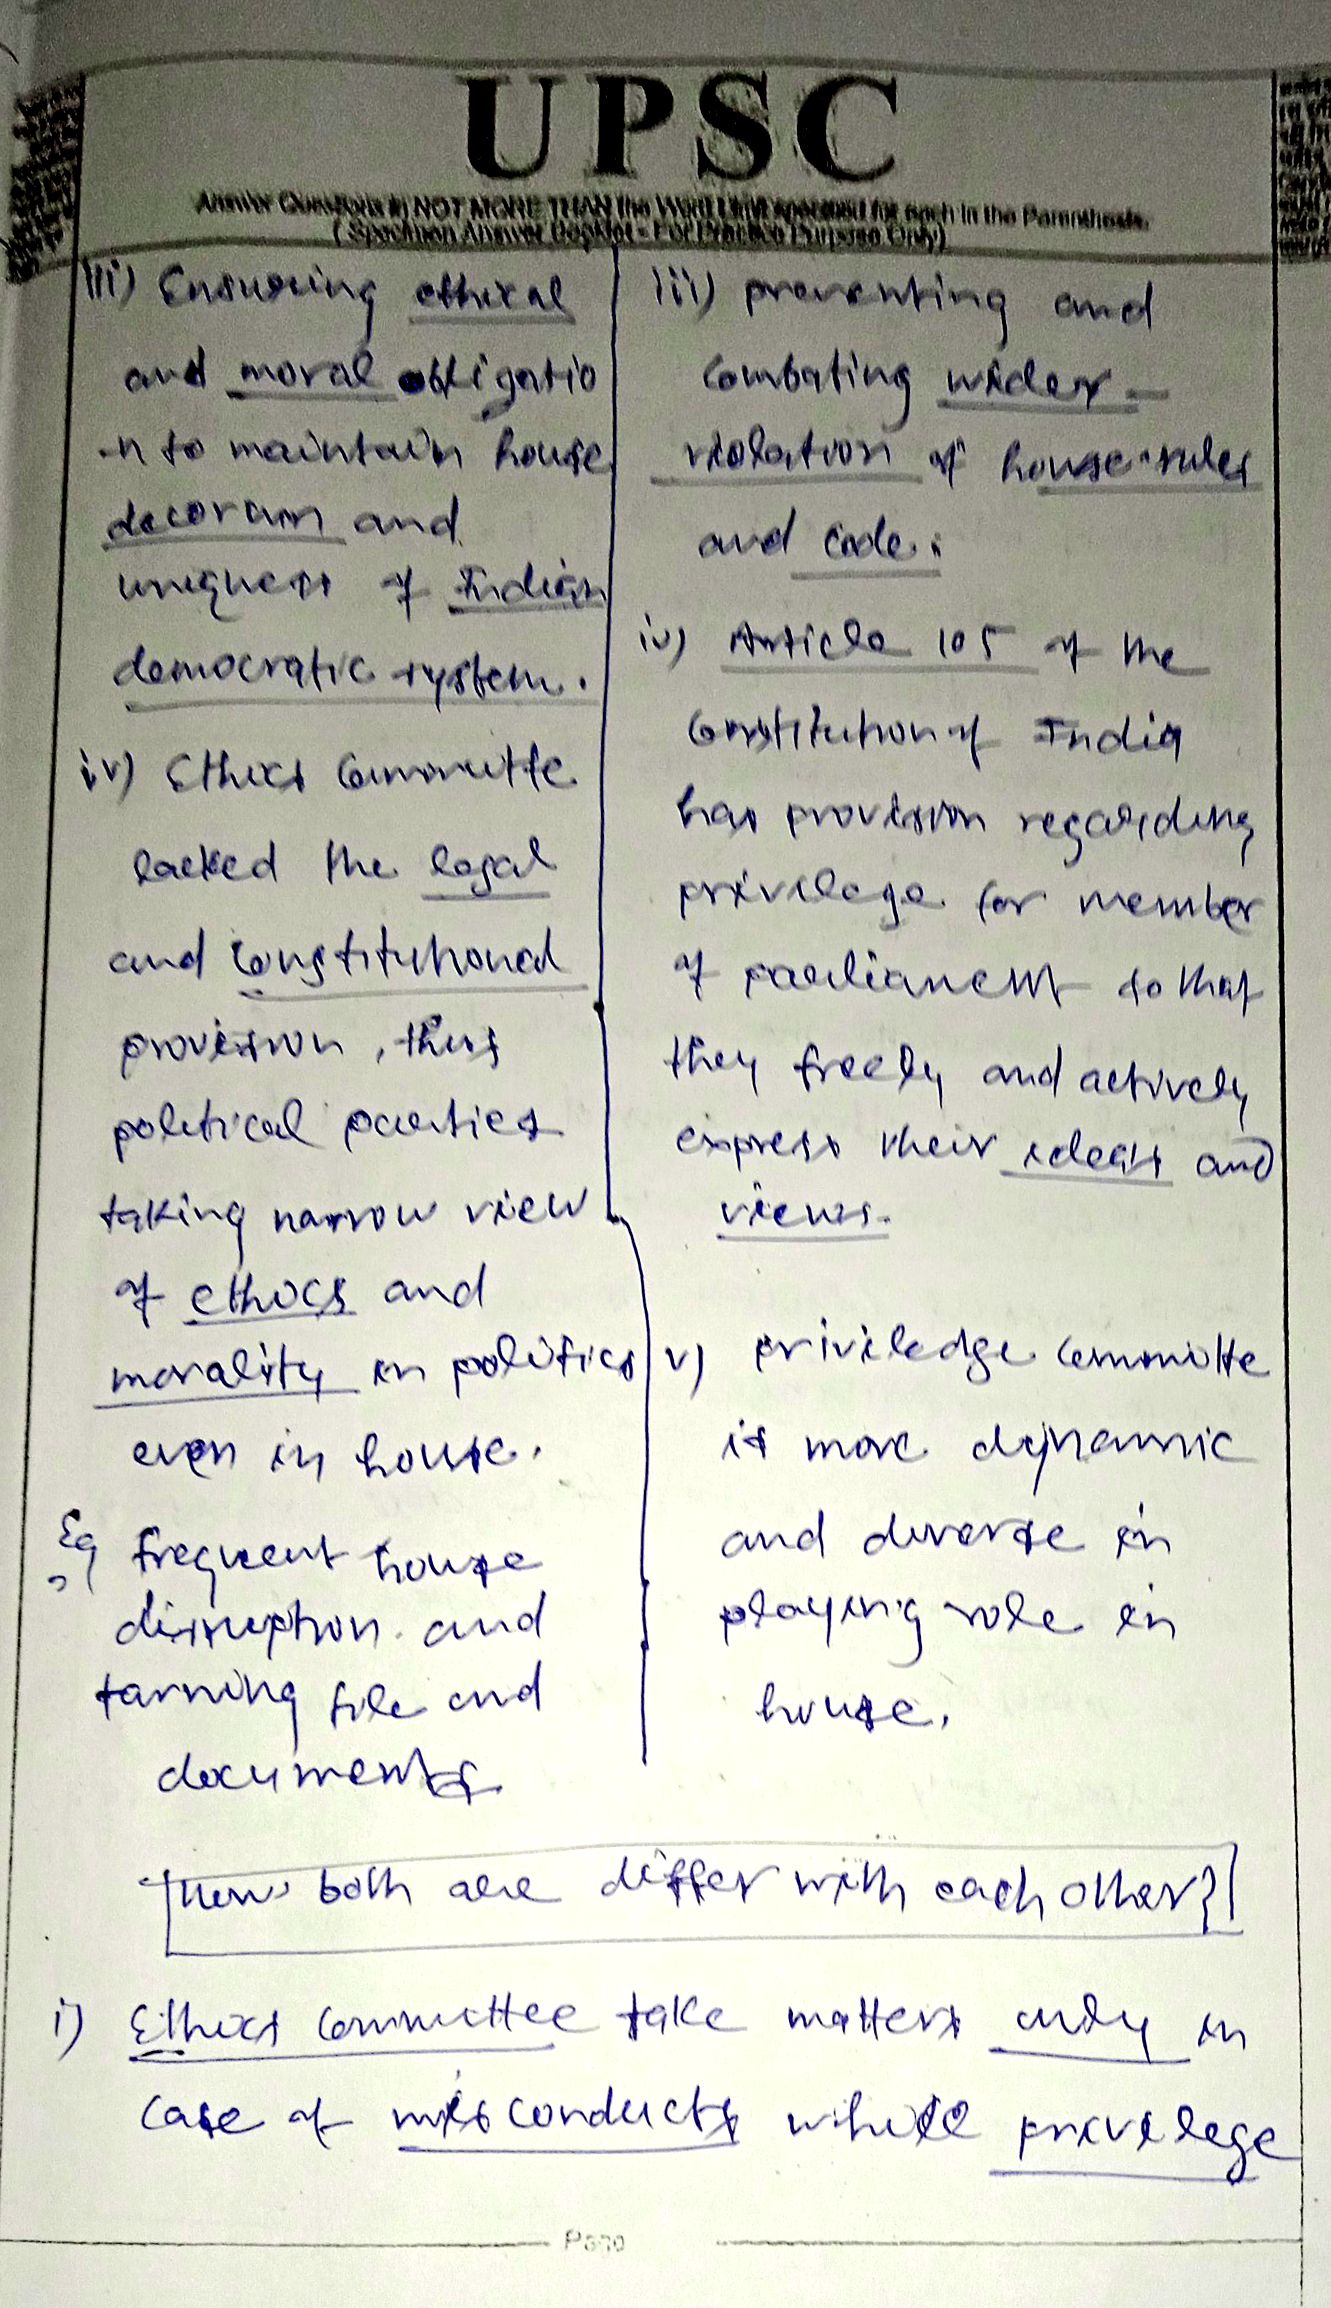 UPSC
Answer Questions in NOT MORE THAN the Word Limit specified for each in the Parenthesis.
(Specimen Answer Booklet - For Practice Purpose Only)
iii) Ensuring ethical
and moral obligatio
-n to maintain house
decorum and
uniqness of Indian
democratic system.
iv) Ethics Committe
lacked the legal
and Constitutional
provision, thus
political parties
taking narrow view
of ethics and
morality in politics
even in house.
Eg frequent house
disruption and
tarning file and
documents
iii) preventing and
Combating wider
violation of house rules
and code.
iv) Article 105 of the
Constitution of India
has provision regarding
privilege for member
of parliament so that
they freely and actively
express their ideas and
views.
v) priviledge Committe
is more dynamic
and diverse in
playing role in
house.
How both are differ with each other?
i) Ethics Committee take matters only in
case of misconducts while privelege
Page